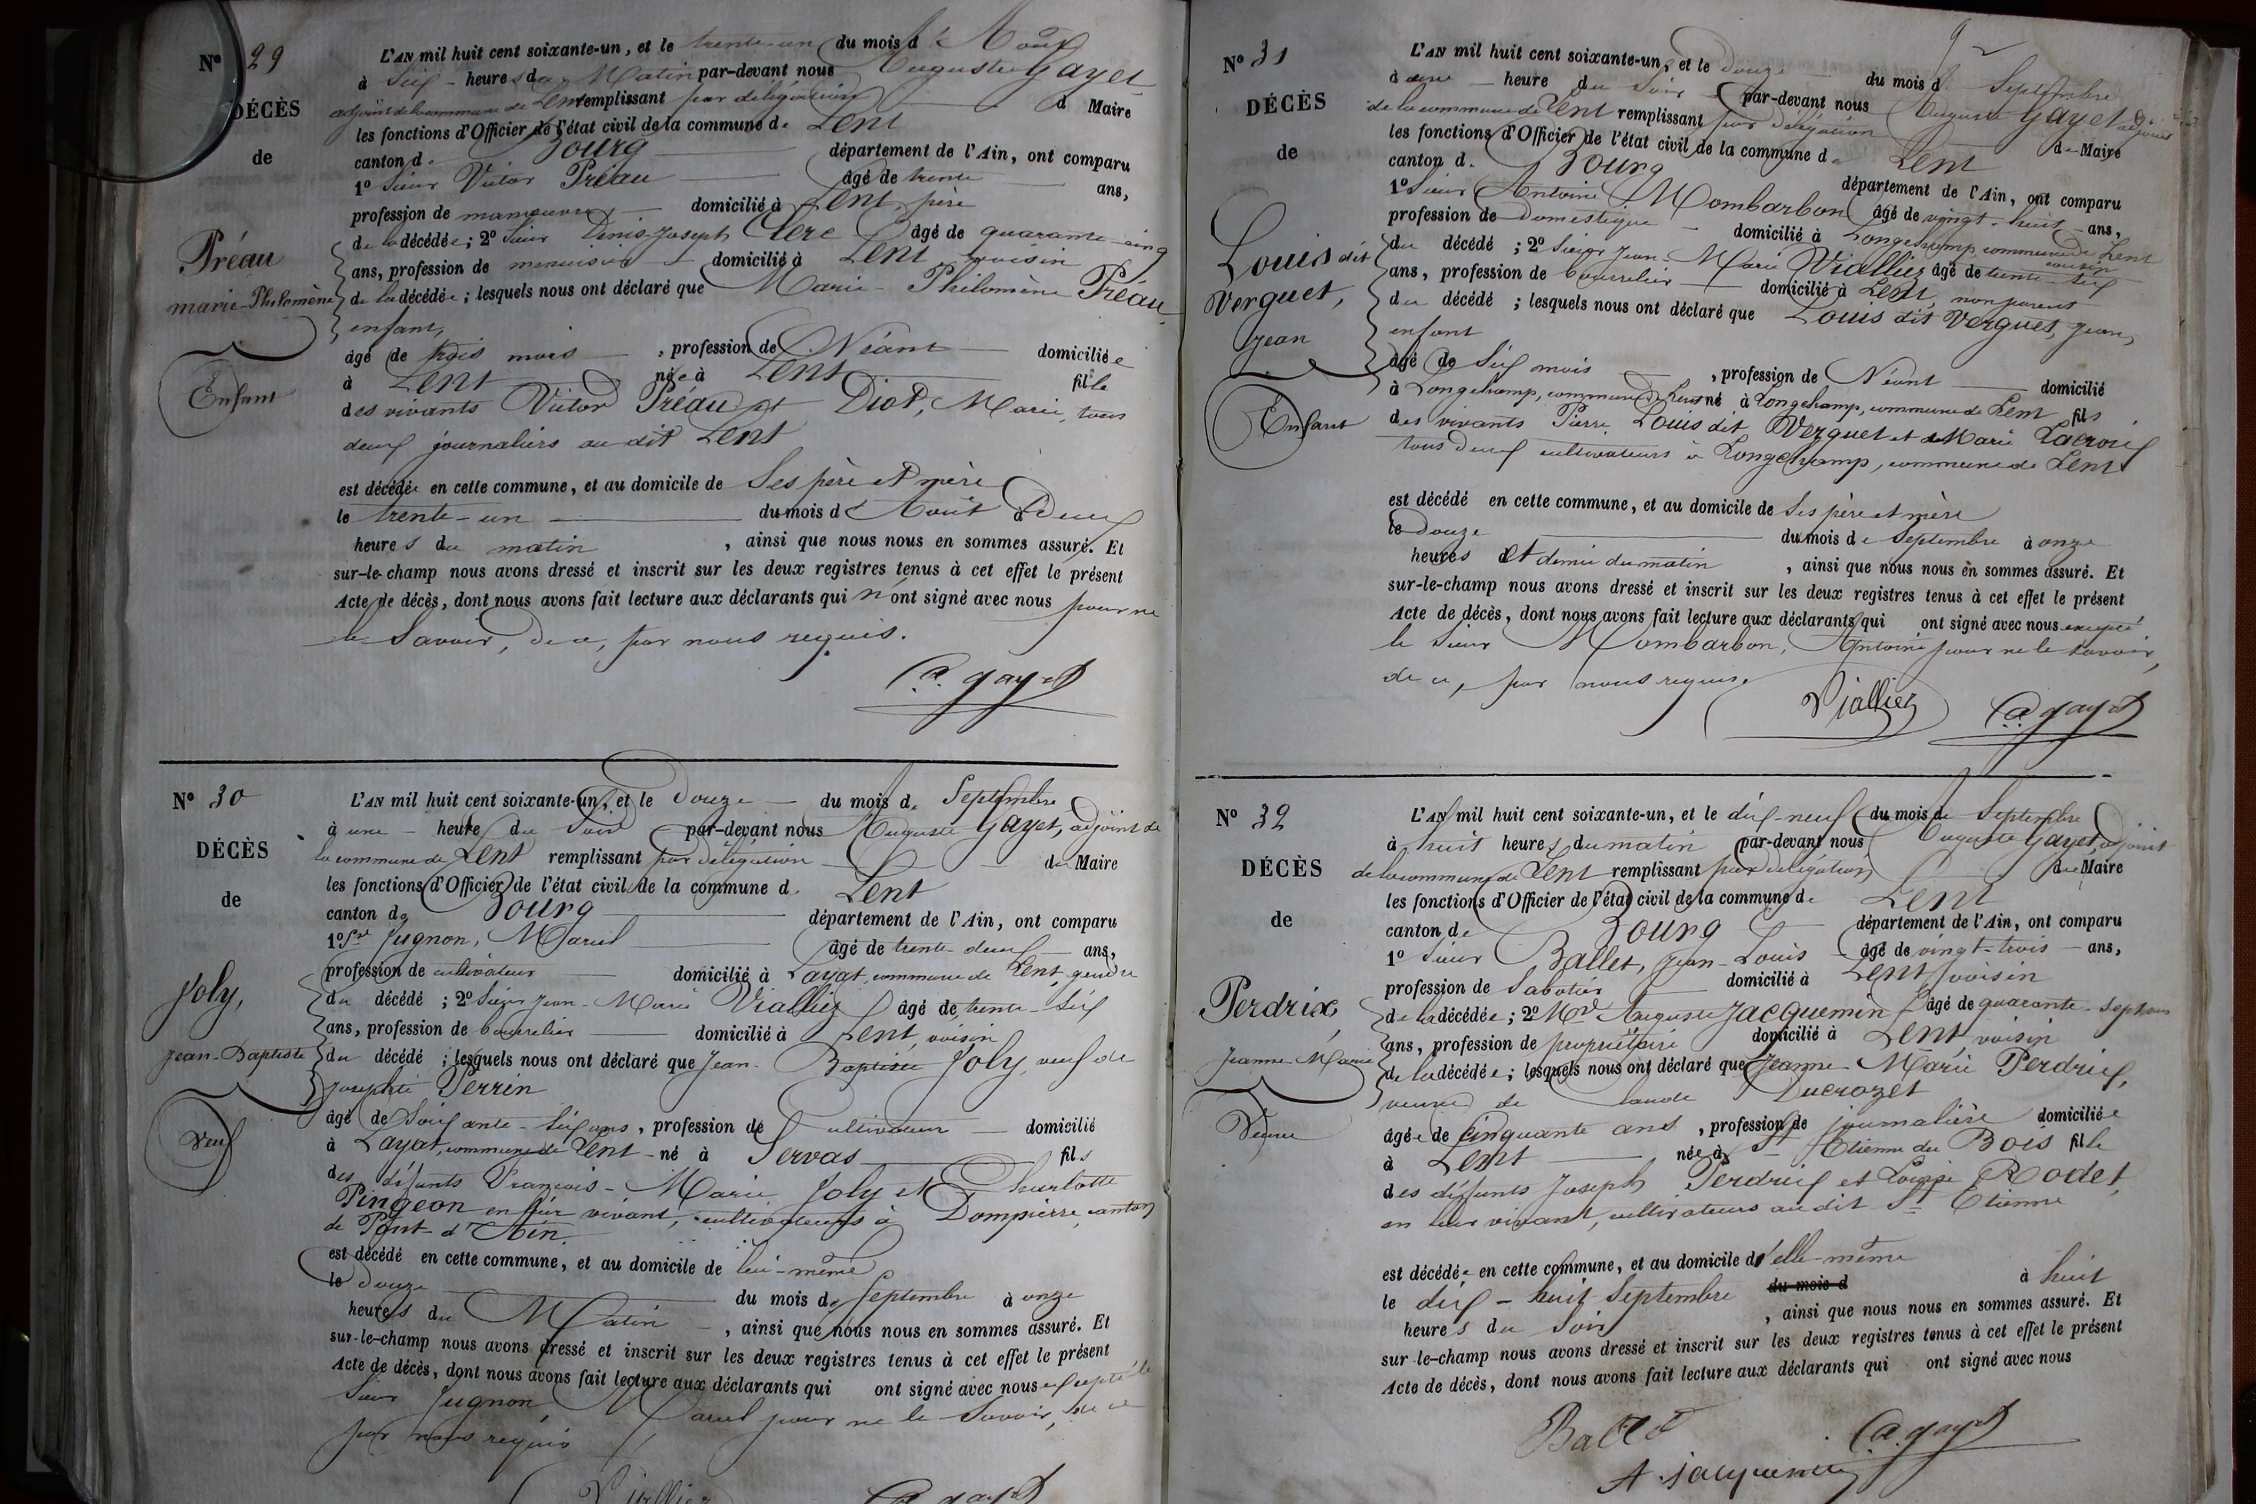 Nº 29
DÉCÈS
de
Préau
marie-Philomène
Enfant
L'AN mil huit cent soixante-un, et le trente-un du mois d'Août
à Six heures du Matin par-devant nous Auguste Gayet
adjoint de la commune de Lent remplissant par délégation d Maire
les fonctions d'Officier de l'état civil de la commune de Lent
canton de Bourg département de l'Ain, ont comparu
1º Sieur Victor Préau âgé de trente ans,
profession de manœuvre domicilié à Lent, père
de la décédée; 2º Sieur Denis-Joseph Clerc âgé de quarante-cinq
ans, profession de menuisier domicilié à Lent voisin
de la décédée; lesquels nous ont déclaré que Marie-Philomène Préau,
enfant,
âgé de trois mois, profession de Néant domiciliée
à Lent née à Lent fille
des vivants Victor Préau et Diot, Marie, tous
deux journaliers au dit Lent
est décédée en cette commune, et au domicile de Ses père et mère
le trente-un du mois d'Août à Deux
heures du matin, ainsi que nous nous en sommes assuré. Et
sur-le-champ nous avons dressé et inscrit sur les deux registres tenus à cet effet le présent
Acte de décès, dont nous avons fait lecture aux déclarants qui n'ont signé avec nous pour ne
le Savoir, de ce, par nous requis.
A. gayet
Nº 30
DÉCÈS
de
Joly,
Jean-Baptiste
Veuf
L'AN mil huit cent soixante-un, et le Douze du mois de Septembre
à une heure du Soir par-devant nous Auguste Gayet, adjoint de
la commune de Lent remplissant par délégation du Maire
les fonctions d'Officier de l'état civil de la commune de Lent
canton de Bourg département de l'Ain, ont comparu
1º Sr Jugnon, Marcel âgé de trente-deux ans,
profession de cultivateur domicilié à Layat, commune de Lent, gendre
du décédé; 2º Sieur Jean-Marie Viallier âgé de trente-Six
ans, profession de bourrelier domicilié à Lent, voisin
du décédé; lesquels nous ont déclaré que Jean-Baptiste Joly, veuf de
Josephte Perrin
âgé de Soixante-Six ans, profession de Cultivateur domicilié
à Layat, commune de Lent né à Servas fils
des défunts François-Marie Joly et Charlotte
Pingeon en leur vivant, cultivateurs à Dompierre, canton
de Pont-d'Ain.
est décédé en cette commune, et au domicile de lui-même
le Douze du mois de Septembre à onze
heures du Matin, ainsi que nous nous en sommes assuré. Et
sur-le-champ nous avons dressé et inscrit sur les deux registres tenus à cet effet le présent
Acte de décès, dont nous avons fait lecture aux déclarants qui ont signé avec nous excepté le
Sieur Jugnon, Marcel pour ne le Savoir, de ce
par nous requis
Viallier A. gayet
Nº 31
DÉCÈS
de
Louis dit
Verguet,
Jean
Enfant
L'AN mil huit cent soixante-un, et le Douze du mois de Septembre
à une heure du Soir par-devant nous Auguste Gayet adjoint
de la commune de Lent remplissant par délégation de Maire
les fonctions d'Officier de l'état civil de la commune de Lent
canton d. Bourg département de l'Ain, ont comparu
1º Sieur Antoine Mombarbon âgé de vingt-huit ans,
profession de Domestique domicilié à Longchamp, commune de Lent
cousin
du décédé; 2º Sieur Jean-Marie Viallier âgé de trente-Six
ans, profession de bourrelier domicilié à Lent, non parent
du décédé; lesquels nous ont déclaré que Louis dit Verguet, Jean,
enfant
âgé de Six mois, profession de Néant domicilié
à Longchamp, commune de Lent né à Longchamp, commune de Lent fils
des vivants Pierre Louis dit Verguet et de Marie Lacroix
tous deux cultivateurs à Longchamp, commune de Lent
est décédé en cette commune, et au domicile de Ses père et mère
le Douze du mois de Septembre à onze
heures et demie du matin, ainsi que nous nous en sommes assuré. Et
sur-le-champ nous avons dressé et inscrit sur les deux registres tenus à cet effet le présent
Acte de décès, dont nous avons fait lecture aux déclarants qui ont signé avec nous excepté
le Sieur Mombarbon, Antoine pour ne le savoir,
de ce, par nous requis.
Viallier A. gayet
Nº 32
DÉCÈS
de
Perdrix
Jeanne-Marie
Veuve
L'AN mil huit cent soixante-un, et le dix-neuf du mois de Septembre
à huit heures du matin par-devant nous Auguste Gayet, adjoint
de la commune de Lent remplissant par délégation du Maire
les fonctions d'Officier de l'état civil de la commune de Lent
canton de Bourg département de l'Ain, ont comparu
1º Sieur Ballet, Jean-Louis âgé de vingt-trois ans,
profession de Sabotier domicilié à Lent, voisin
de la décédée; 2º Mr Auguste Jacquemin âgé de quarante-Sept ans
ans, profession de propriétaire domicilié à Lent voisin
de la décédée; lesquels nous ont déclaré que Jeanne-Marie Perdrix,
veuve de Claude Ducrozet
âgée de Cinquante ans, profession de journalière domiciliée
à Lent née à St Etienne du Bois fille
des défunts Joseph Perdrix et Louise Rodet,
en leur vivant, cultivateurs au dit St Etienne
est décédée en cette commune, et au domicile d'elle-même
le dix-huit Septembre du mois d à huit
heures du Soir, ainsi que nous nous en sommes assuré. Et
sur-le-champ nous avons dressé et inscrit sur les deux registres tenus à cet effet le présent
Acte de décès, dont nous avons fait lecture aux déclarants qui ont signé avec nous
Ballet A. gayet
A. jacquemin